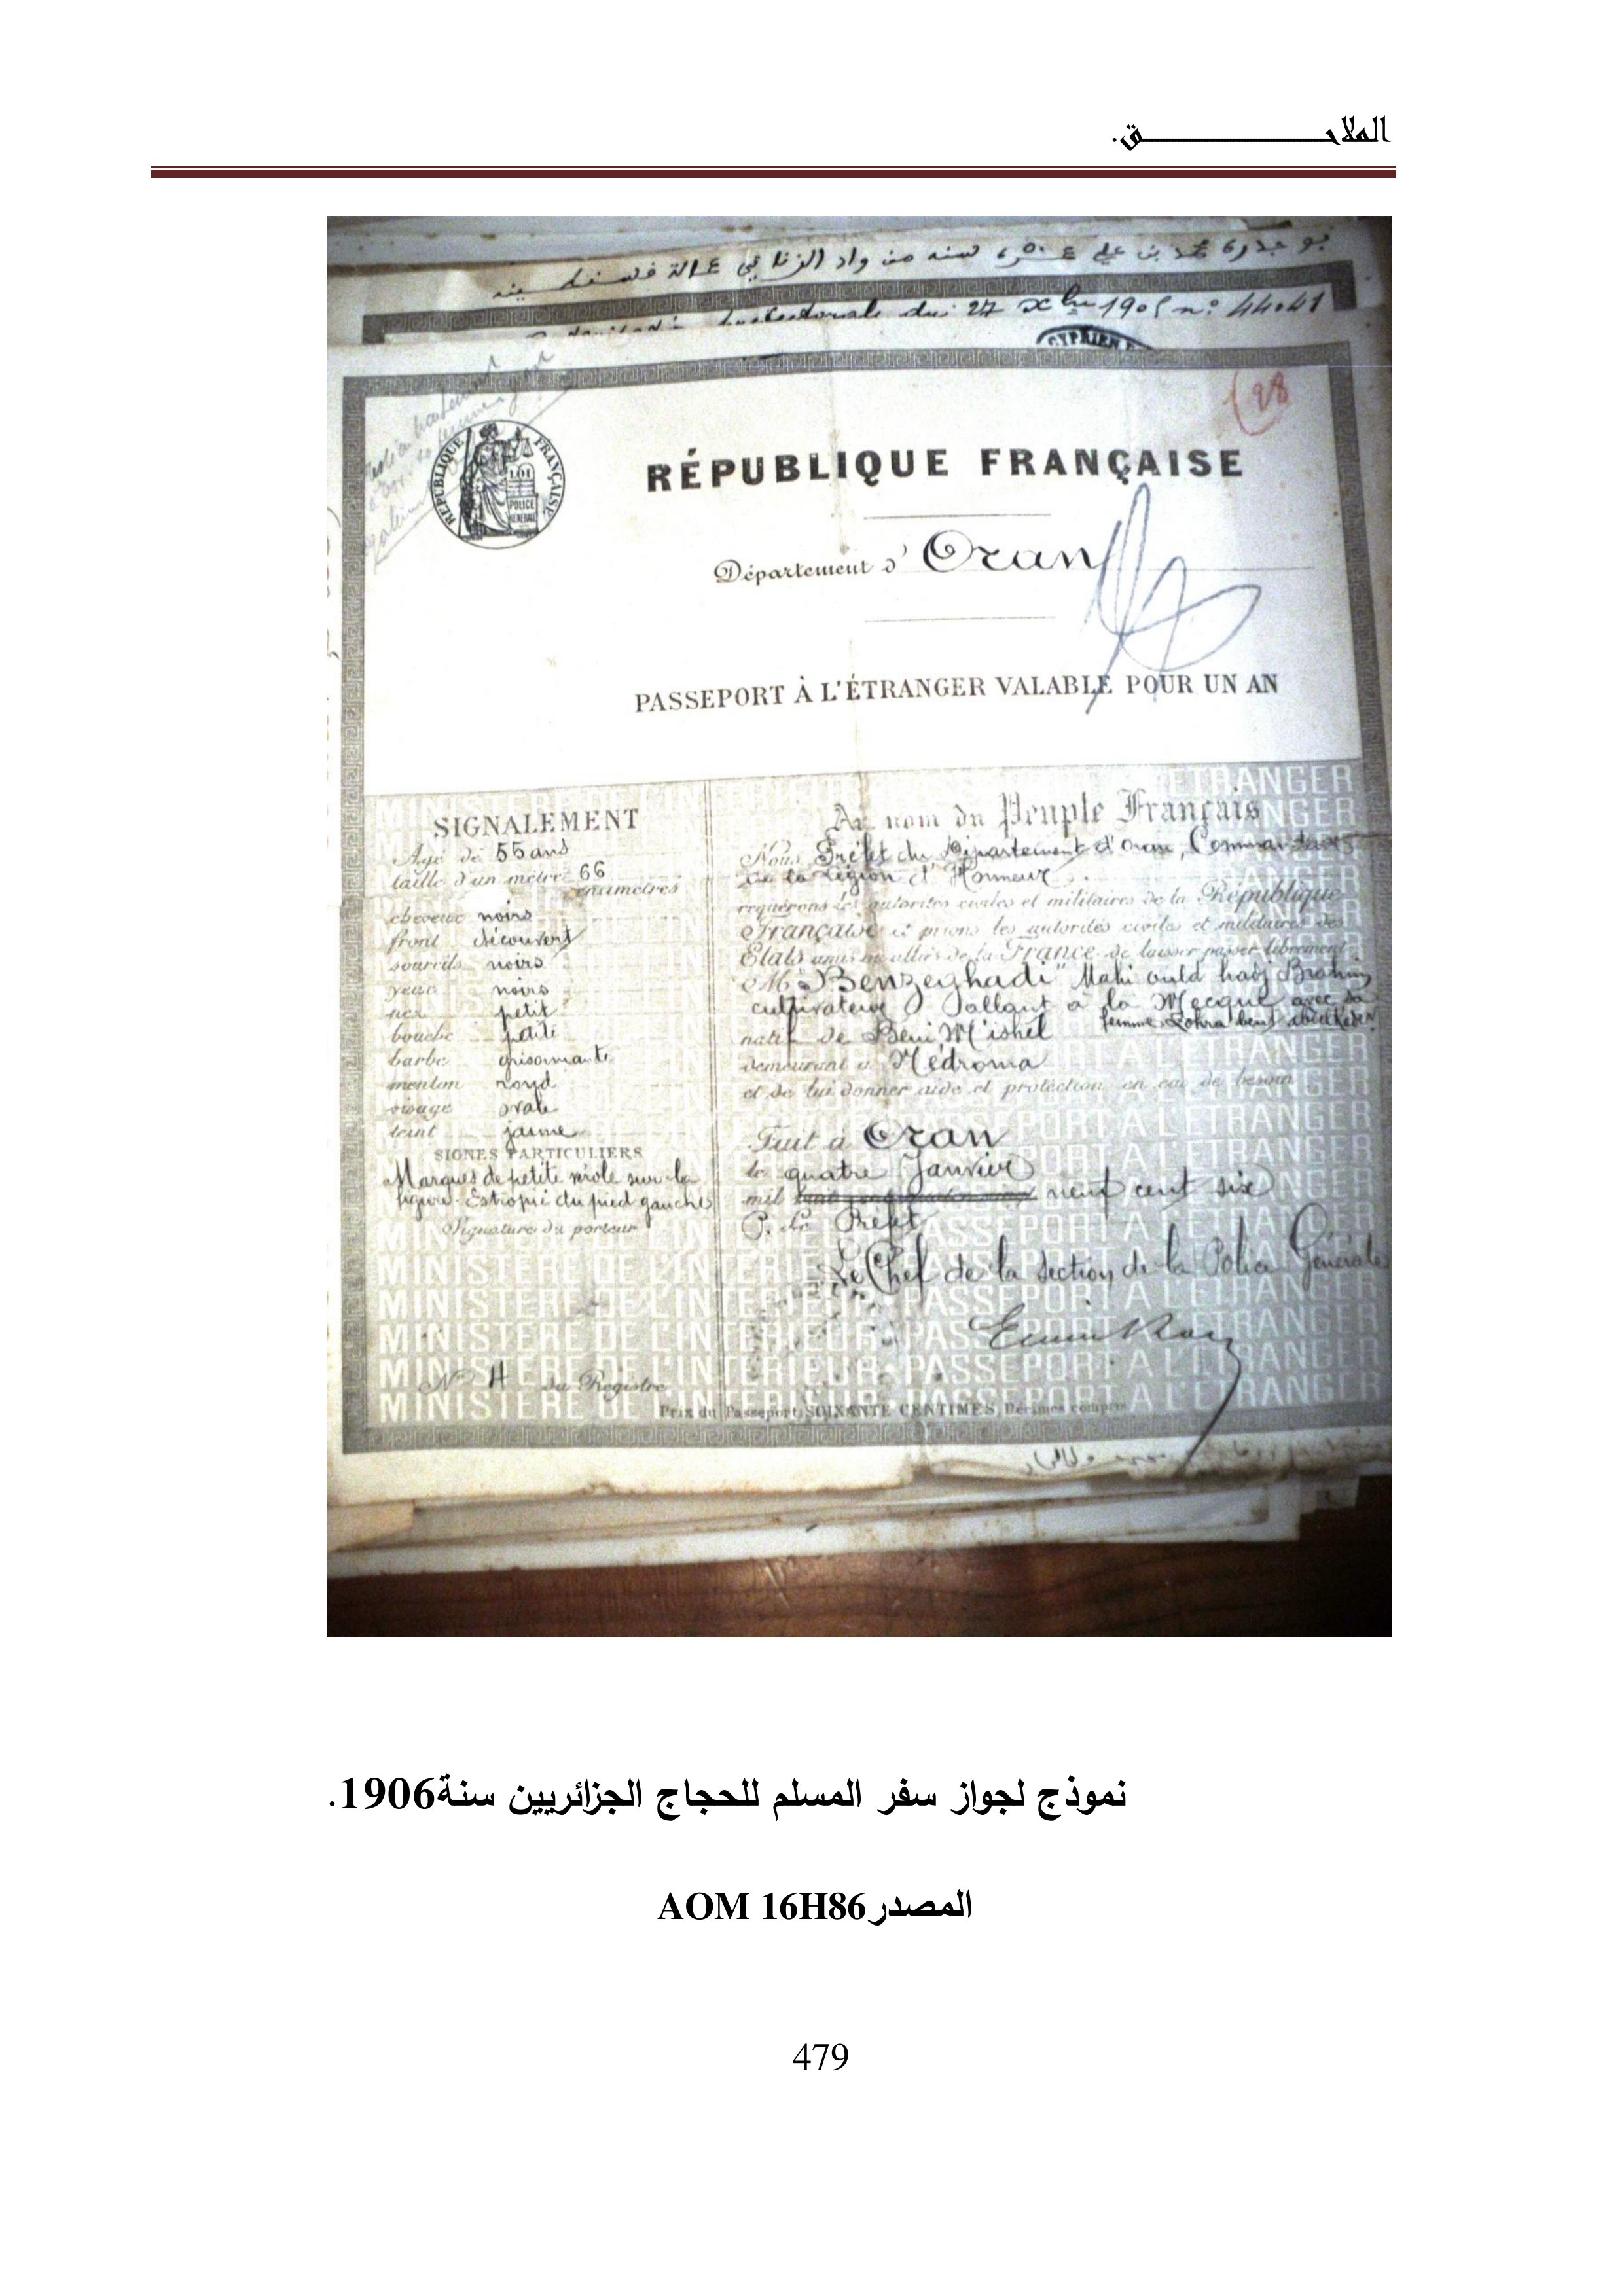 الملاحـــــــــــــــــــق.
سنه من واد الزناتي عمالة قسنطينه
du 27 Xbre 1905 n° 44041
CYPRIEN
128
RÉPUBLIQUE FRANÇAISE
LOI
POLICE
GÉNÉRALE
RÉPUBLIQUE FRANÇAISE
Département d' Oran
PASSEPORT À L'ÉTRANGER VALABLE POUR UN AN
SIGNALEMENT
Agé de 55 ans
taille d'un mètre 66
centimètres
cheveux noirs
front découvert
sourcils noirs
yeux noirs
nez petit
bouche petite
barbe grisonnante
menton rond
visage ovale
teint jaune
SIGNES PARTICULIERS
Marques de petite vérole sur la
figure. Estropié du pied gauche
Signature du porteur
N° 4 du Registre
Au nom du Peuple Français
Nous Préfet du Département d'Oran, Commandeur
de la Légion d'Honneur
requérons les autorités civiles et militaires de la République
Française et prions les autorités civiles et militaires des
Etats amis ou alliés de la France de laisser passer librement
M. Benzeghadi Mahi ould hadj Brahim
cultivateur allant à la Mecque avec sa
femme Zohra bent
natif de Beni M'ishel
demeurant à Nédroma
et de lui donner aide et protection en cas de besoin
Fait à Oran
le quatre Janvier
mil neuf cent six
P. Le Préfet
Le Chef de la section de la Police Générale
Prix du Passeport, SOIXANTE CENTIMES, Décimes compris
MINISTERE DE L'INTERIEUR • PASSEPORT A L'ETRANGER
نموذج لجواز سفر المسلم للحجاج الجزائريين سنة1906.
المصدرAOM 16H86
479